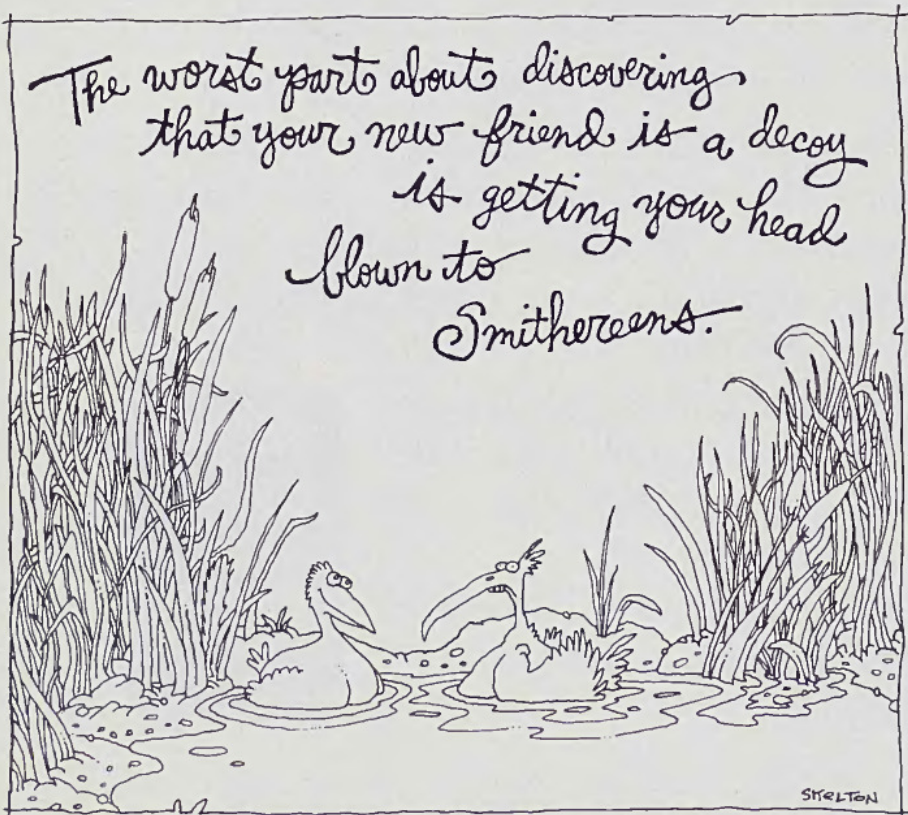 The worst part about discovering
that your new friend is a decoy
is getting your head
blown to
Smithereens.
SKELTON